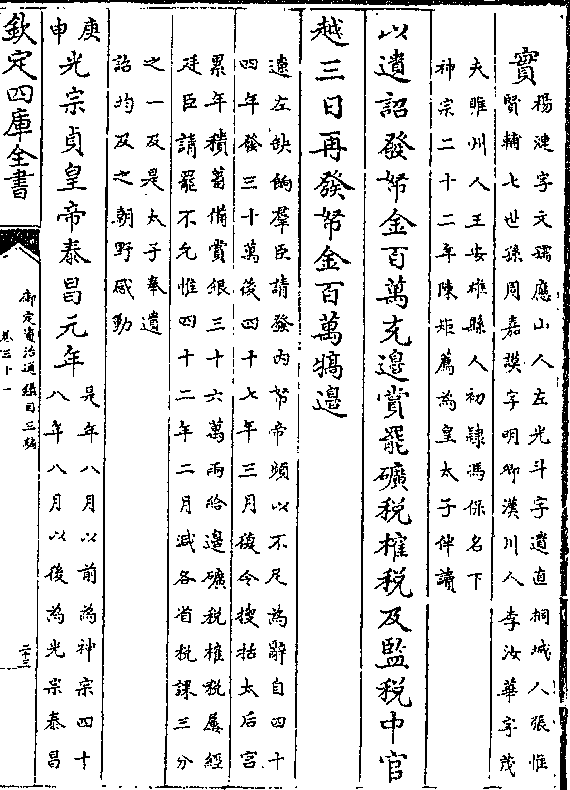 實
楊漣字文孺應山人左光斗字遺直桐城人張惟
賢輔七世孫周嘉謨字明卿漢川人李汝華字茂
夫睢州人王安雄縣人初隸馮保名下
神宗二十二年陳矩薦為皇太子伴讀
以遺詔發帑金百萬充邊賞罷礦稅榷稅及監稅中官
越三日再發帑金百萬犒邊
遼左缺餉羣臣請發內帑帝頻以不足為辭自四十
四年發三十萬後四十七年三月復令搜括太后宫
累年積蓄備賞銀三十六萬兩給邊礦稅榷稅屢經
廷臣請罷不允惟四十二年二月減各省稅課三分
之一及是太子奉遺
詔均及之朝野感動
庚申
光宗貞皇帝泰昌元年
是年八月以前為神宗四十
八年八月以後為光宗泰昌
欽定四庫全書
御定資治通鑑目三編
卷三十一
二十三